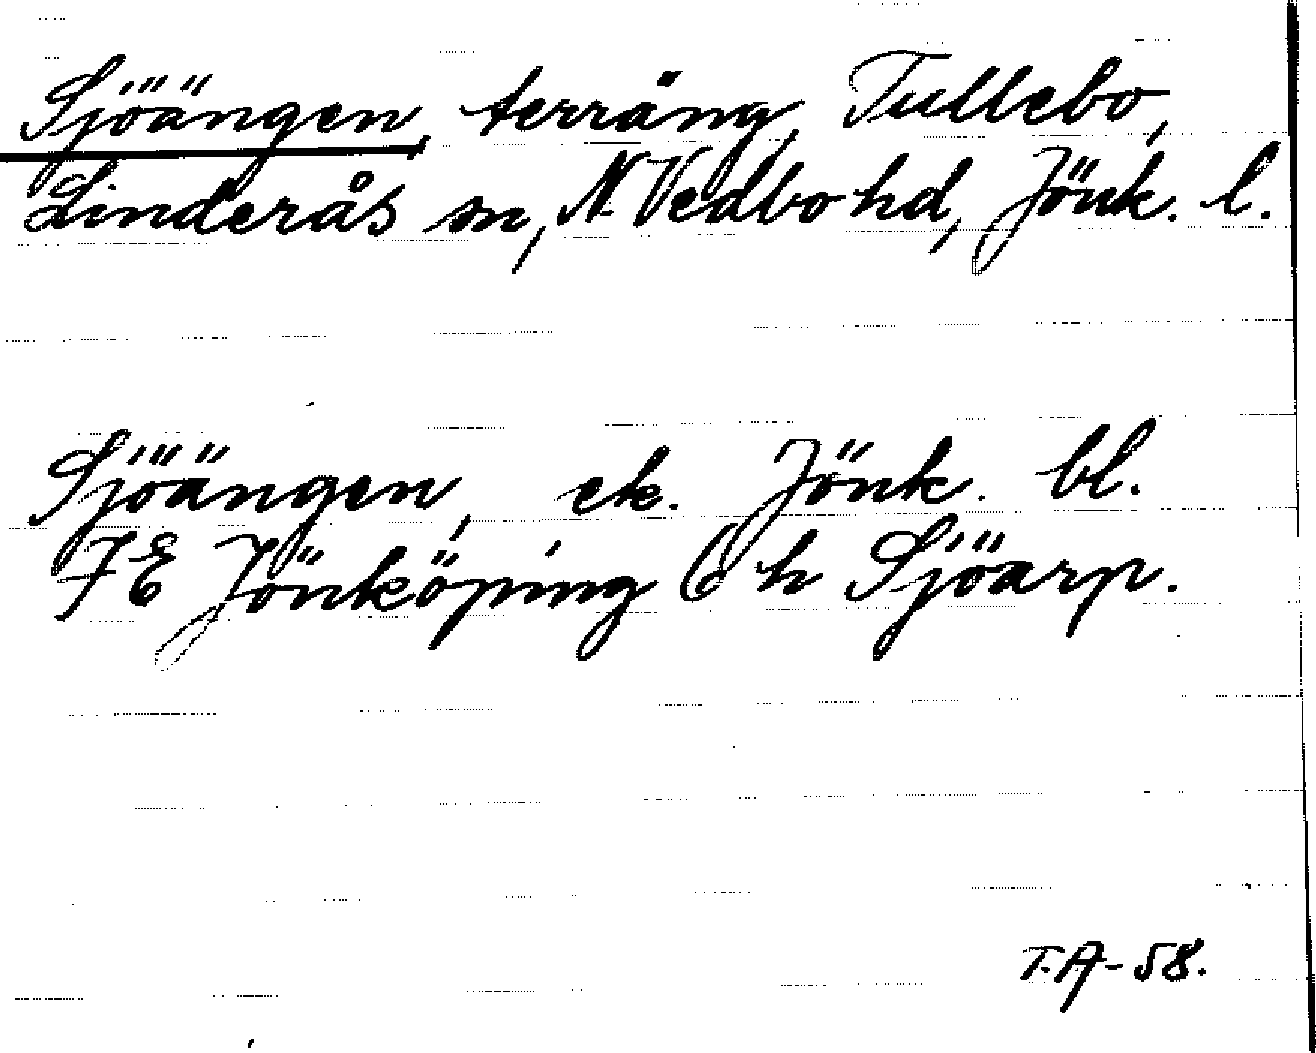 Sjöängen, terräng, Tullebo,
Linderås sn, N. Vedbo hd, Jönk. l.
Sjöängen, ek. Jönk. bl.
7E Jönköping 6 h Sjöarp.
T.A-58.